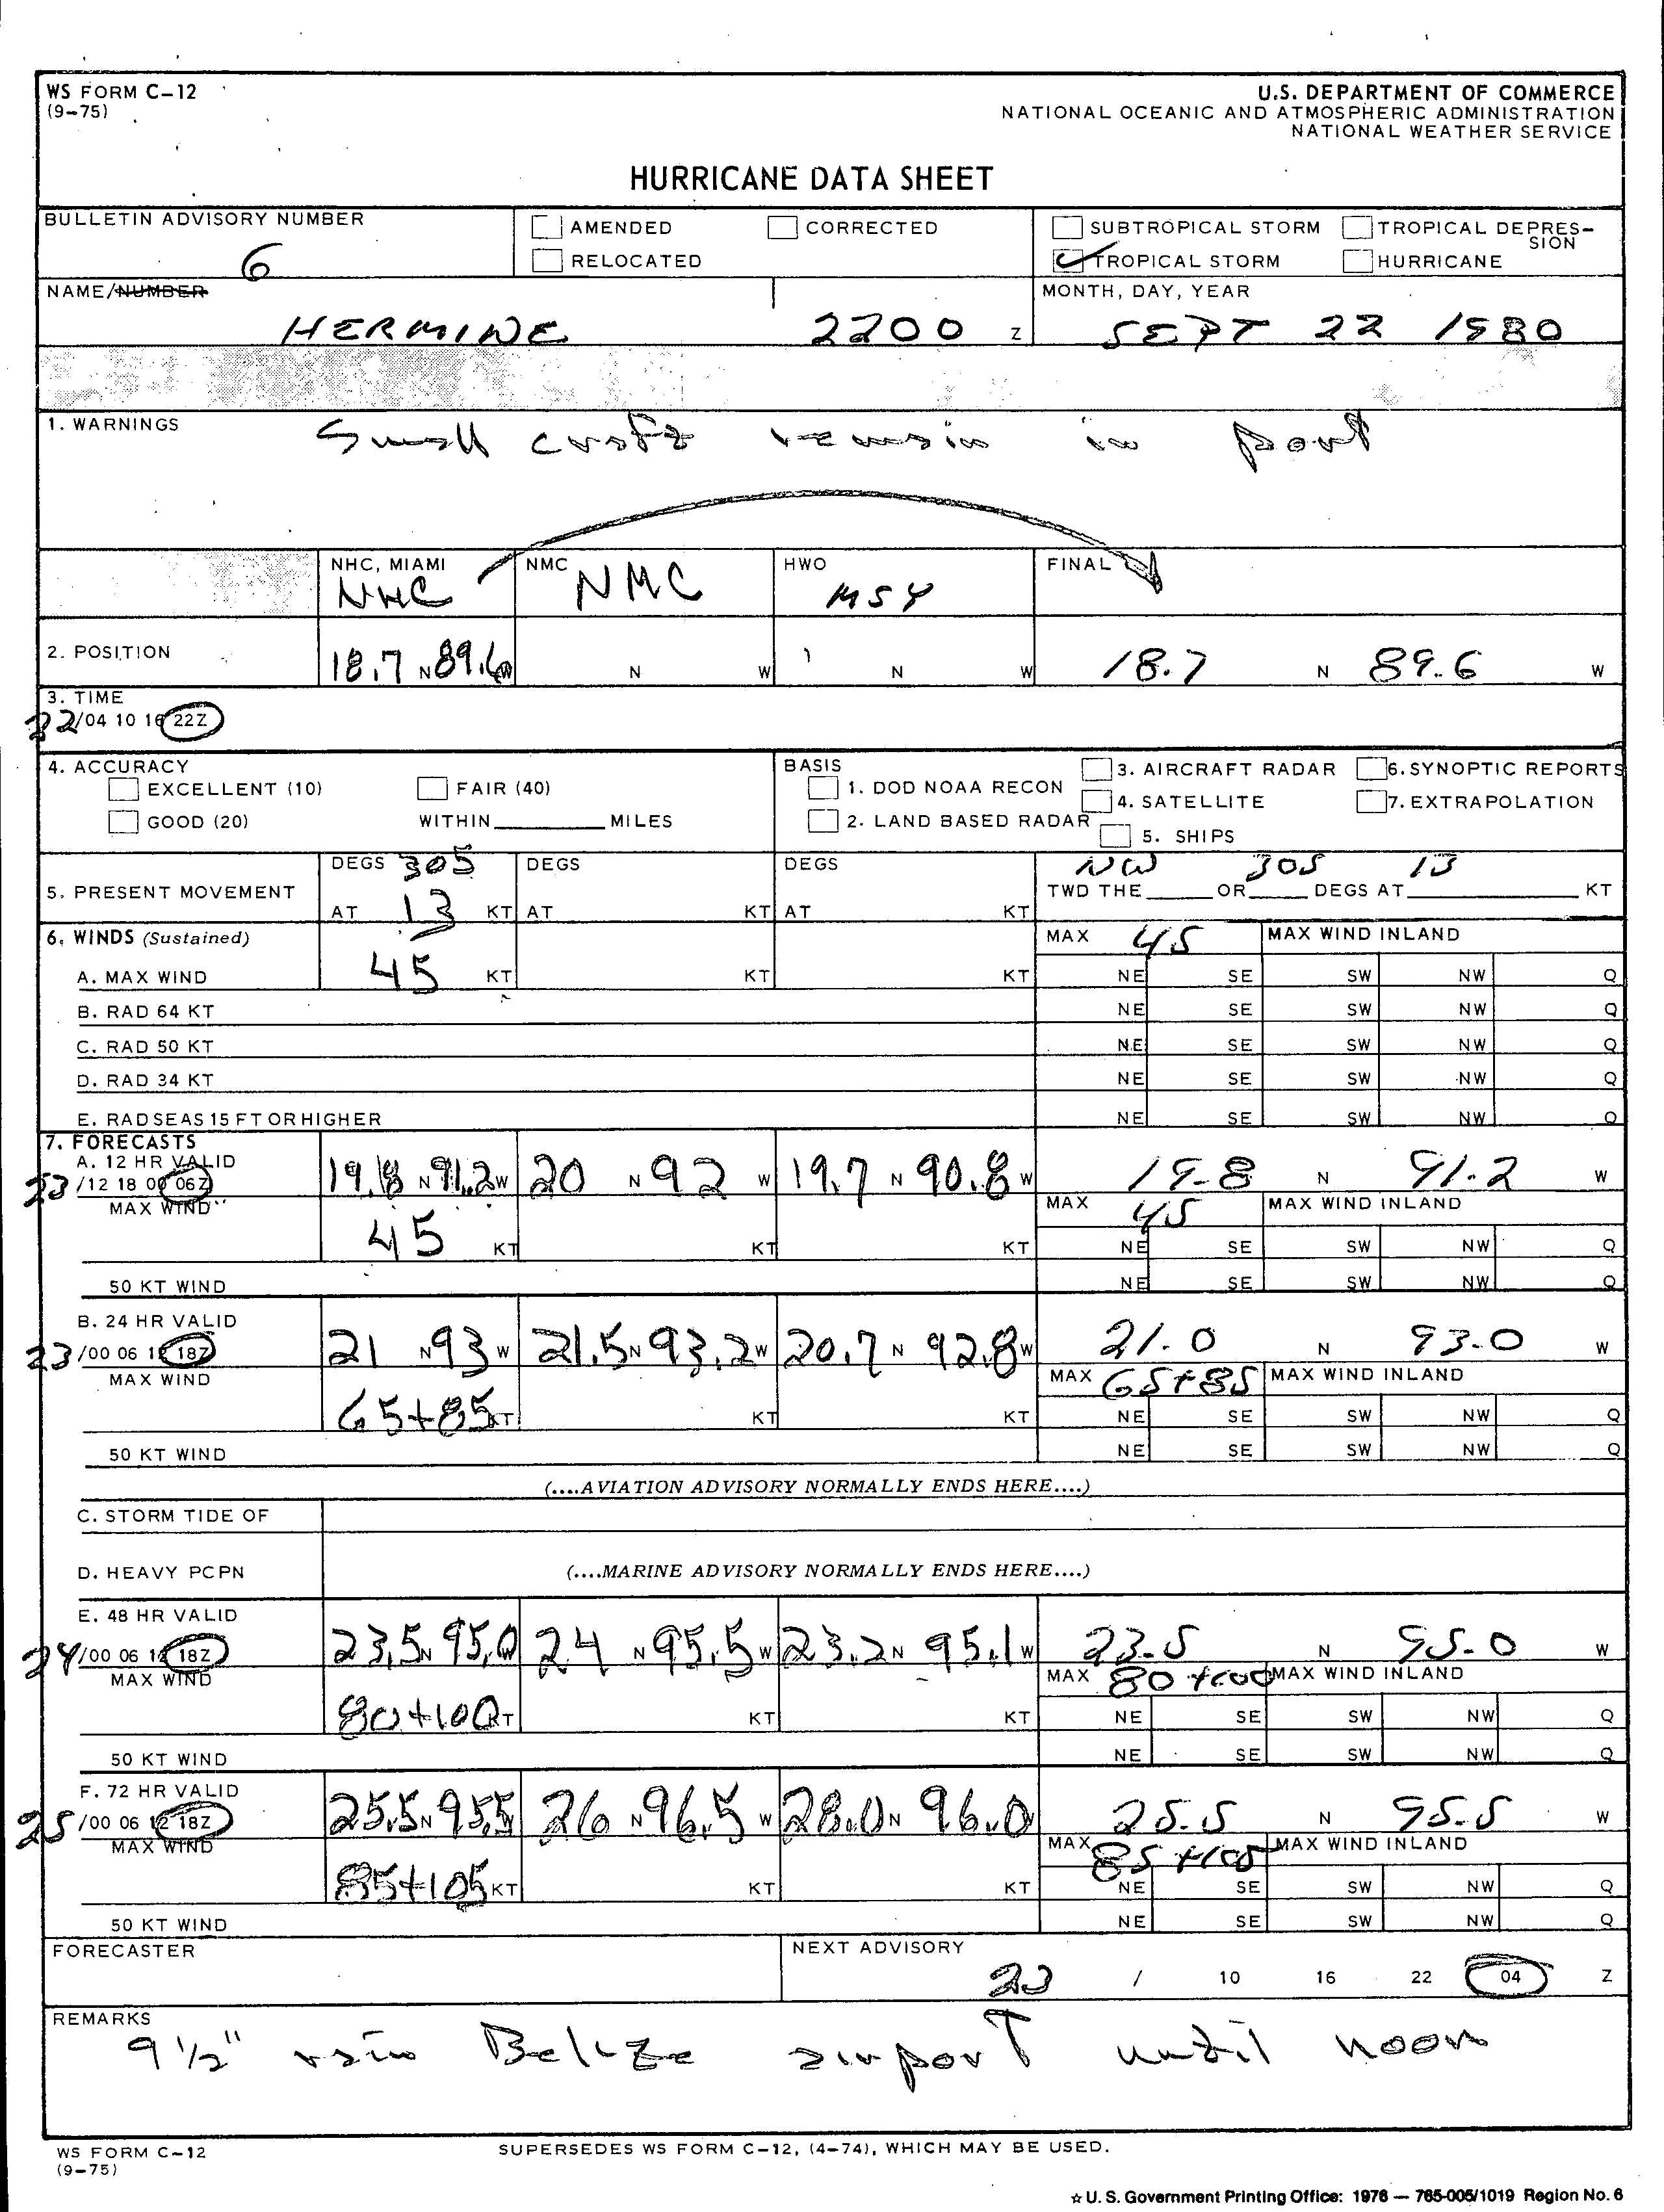 WS FORM C-12
(9-75)
U.S. DEPARTMENT OF COMMERCE
NATIONAL OCEANIC AND ATMOSPHERIC ADMINISTRATION
NATIONAL WEATHER SERVICE
HURRICANE DATA SHEET
BULLETIN ADVISORY NUMBER
6
AMENDED CORRECTED
RELOCATED
SUBTROPICAL STORM TROPICAL DEPRES-
SION
TROPICAL STORM HURRICANE
NAME/NUMBER
HERMINE 2200 Z
MONTH, DAY, YEAR
SEPT 22 1980
1. WARNINGS
Small crafts remain in port
NHC, MIAMI NMC HWO FINAL
NHC NMC MSY
2. POSITION 18.7 N 89.6 W N W N W 18.7 N 89.6 W
3. TIME
22/04 10 16 22Z
4. ACCURACY
EXCELLENT (10) FAIR (40)
GOOD (20) WITHIN MILES
BASIS
1. DOD NOAA RECON 3. AIRCRAFT RADAR 6. SYNOPTIC REPORTS
2. LAND BASED RADAR 4. SATELLITE 7. EXTRAPOLATION
5. SHIPS
5. PRESENT MOVEMENT
DEGS 305 DEGS DEGS NW 305 13
AT 13 KT AT KT AT KT TWD THE OR DEGS AT KT
6. WINDS (Sustained) MAX 45 MAX WIND INLAND
A. MAX WIND 45 KT KT KT NE SE SW NW Q
B. RAD 64 KT NE SE SW NW Q
C. RAD 50 KT NE SE SW NW Q
D. RAD 34 KT NE SE SW NW Q
E. RAD SEAS 15 FT OR HIGHER NE SE SW NW Q
7. FORECASTS
A. 12 HR VALID
23/12 18 00 06Z 19.8 N 91.2 W 20 N 92 W 19.7 N 90.8 W 19.8 N 91.2 W
MAX WIND MAX 45 MAX WIND INLAND
45 KT KT KT NE SE SW NW Q
50 KT WIND NE SE SW NW Q
B. 24 HR VALID
23/00 06 12 18Z 21 N 93 W 21.5 N 93.2 W 20.7 N 92.8 W 21.0 N 93.0 W
MAX WIND MAX 65+85 MAX WIND INLAND
65+85 KT KT KT NE SE SW NW Q
50 KT WIND NE SE SW NW Q
(....AVIATION ADVISORY NORMALLY ENDS HERE....)
C. STORM TIDE OF
D. HEAVY PCPN (....MARINE ADVISORY NORMALLY ENDS HERE....)
E. 48 HR VALID
24/00 06 12 18Z 23.5 N 95.0 W 24 N 95.5 W 23.2 N 95.1 W 23.5 N 95.0 W
MAX WIND MAX 80+100 MAX WIND INLAND
80+100 KT KT KT NE SE SW NW Q
50 KT WIND NE SE SW NW Q
F. 72 HR VALID
25/00 06 12 18Z 25.5 N 95.5 26 N 96.5 W 28.0 N 96.0 W 25.5 N 95.5 W
MAX WIND MAX 85+105 MAX WIND INLAND
85+105 KT KT KT NE SE SW NW Q
50 KT WIND NE SE SW NW Q
FORECASTER NEXT ADVISORY
23 / 10 16 22 04 Z
REMARKS
9 1/2" rain Belize airport until noon
WS FORM C-12
(9-75)
SUPERSEDES WS FORM C-12, (4-74), WHICH MAY BE USED.
☆ U. S. Government Printing Office: 1976 — 765-005/1019 Region No. 6